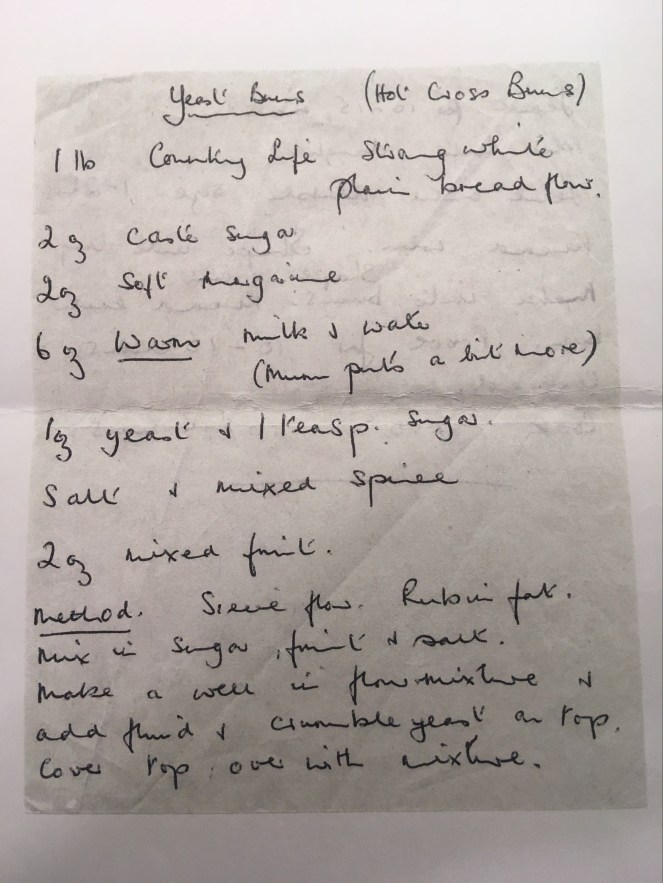 Yeast Buns (Hot Cross Buns)
1 lb Country Life Strong white
plain bread flour.
2 oz Caste Sugar
2oz Soft margarine
6 oz Warm milk & water
(Mum puts a bit more)
1oz yeast & 1 teasp. Sugar.
Salt & mixed spice
2oz mixed fruit.
Method. Sieve flour. Rub in fat.
Mix in Sugar, fruit & salt.
Make a well in flour mixture &
add fluid & crumble yeast on top.
Cover top over with mixture.